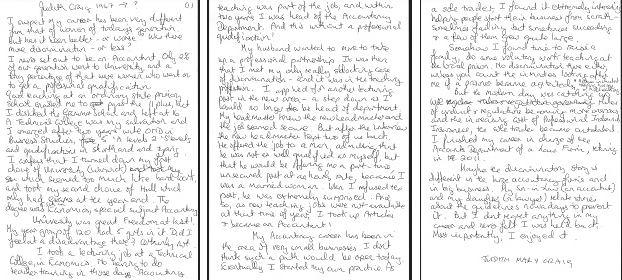 Judith Craig 1967 → ?
(1)
I suspect my career has been very different
from that of women of today's generation
but has it been better - or worse? Was there
more discrimination - or less?
I never set out to be an Accountant. Only 2%
of our generation went to University, and a
tiny percentage of that were women who went on
to get a professional qualification.
God teaching at an ordinary state primary
School enabled me to get past the 11 plus, but
I disliked the Grammar School and left at 16
A Technical College was my salvation and
I emerged after two years with OND in
Business Studies, 'A' levels, 'O' levels
and qualifications in Shorthand and typing
I confess that I turned down my first
choice of University (Warwick)
and took my second choice of Hull which
only had exams at the year end. The
degree was Economics special subject Accountancy
University was great. Freedom at last!
My year group of 120 had 6 girls in it. Did I
feel at a disadvantage there? Certainly not.
I took a lecturing job at a Technical
College, in Economics. To have to do
teacher training in those days. Accountancy
teaching was part of the job, and within
two years I was head of the Accountancy
Department. And this without a professional
qualification!
My husband wanted to move to take
up a professional partnership. It was then
that I met my only really shocking case
of discrimination - and it was in the teaching
profession. I applied for another lecturing
post in the new area - a step down as I
would no longer be head of department.
My headmaster knew the new headmaster and
the job seemed secure. But after the interviews
the new headmaster kept two of us back.
He offered the job to a man, admitting that
he was not so well qualified as myself, but
that he would be offering me a part-time
unsecured post at an hourly rate, because I
was a married woman. When I refused the
post, he was extremely surprised. And
so, as new teaching jobs were not available
at that time of year, I took up Articles
to become an Accountant!
My Accountancy career has been in
the area of very small businesses. I don't
think such a path would be open today.
Eventually I started my own practice. As
a sole trader, I found it extremely interesting
helping people start their business from scratch -
sometimes failing but sometimes succeeding
to a few of them grew quite large.
Somehow I found time to raise a
family, do some voluntary work teaching and
be brown owl. The discrimination there was
unless you count the minutes
me if a prince became a
But the modern day was catching
of conduct & regulations became more onerous
and the increasing cost of Professional Indemnity
Insurance, the sole trader became outdated
I finished my career in charge of the
Accounts Department of a Law Firm, retiring
in 2011.
Maybe the discriminatory story is
different in the large accountancy firms and
in big business. My son-in-law (an accountant)
and my daughter (a lawyer) relate stories
about the guidelines nowadays to prevent
it. But I don't regret anything in my
career and never felt I was held back.
Most importantly, I enjoyed it
JUDITH MARY CRAIG